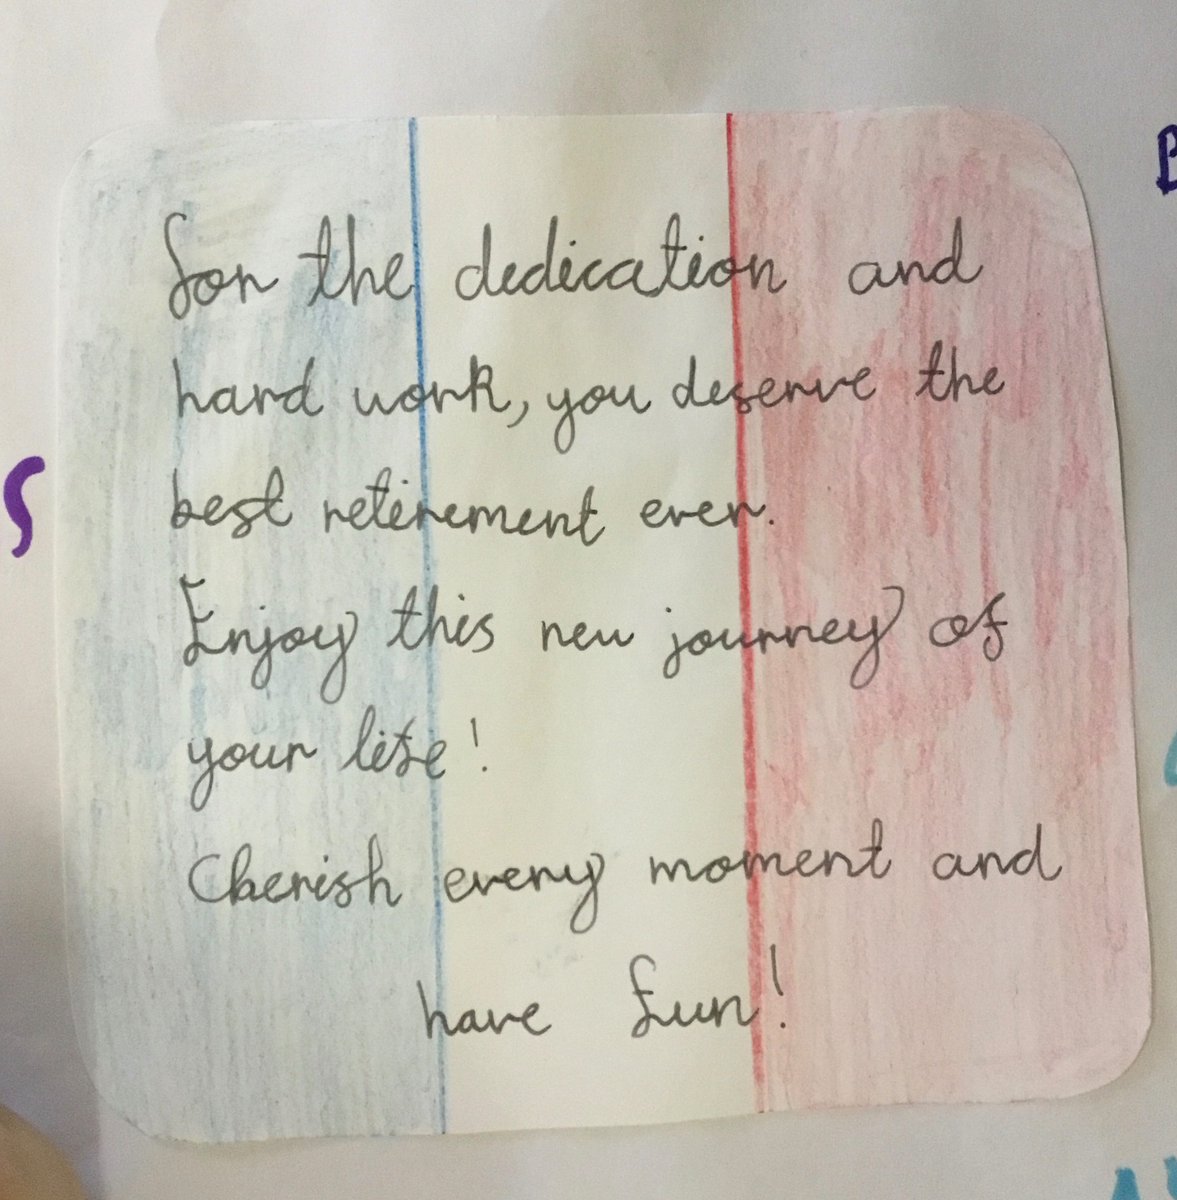 for the dedication and
hard work, you deserve the
best retirement ever.
Enjoy this new journey of
your life!
Cherish every moment and
have fun!